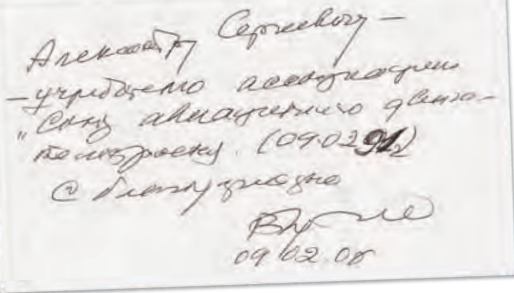 Александру Сергеевичу —
— учредителю ассоциации
"Союз авиационного двигате-
лестроения. (09.02.91г)
С благодарностью
09.02.08